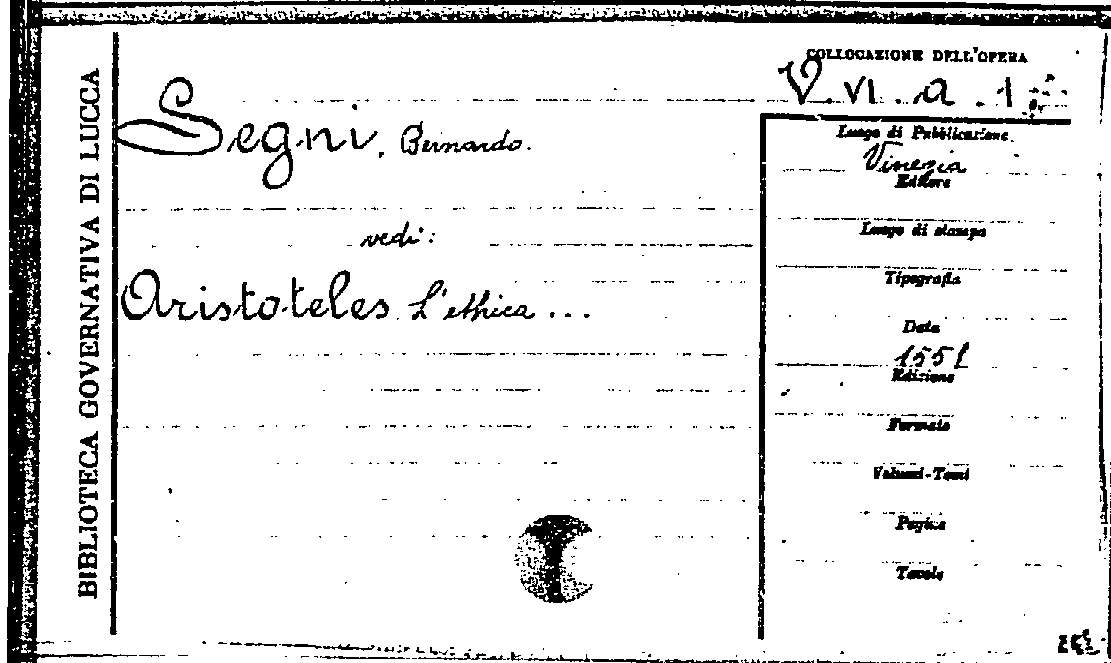 BIBLIOTECA GOVERNATIVA DI LUCCA
Segni, Bernardo.
vedi:
Aristoteles L'ethica ...
COLLOCAZIONE DELL'OPERA
V. VI. a. 1
Luogo di Pubblicazione
Vinezia
Editore
Luogo di stampa
Tipografia
Data
1551
Edizione
Formato
Volumi-Tomi
Pagine
Tavole